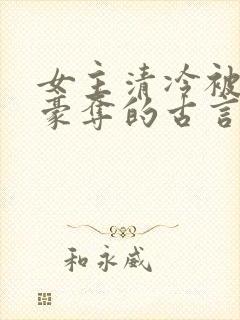 女主清冷被
豪夺的古言
和永威